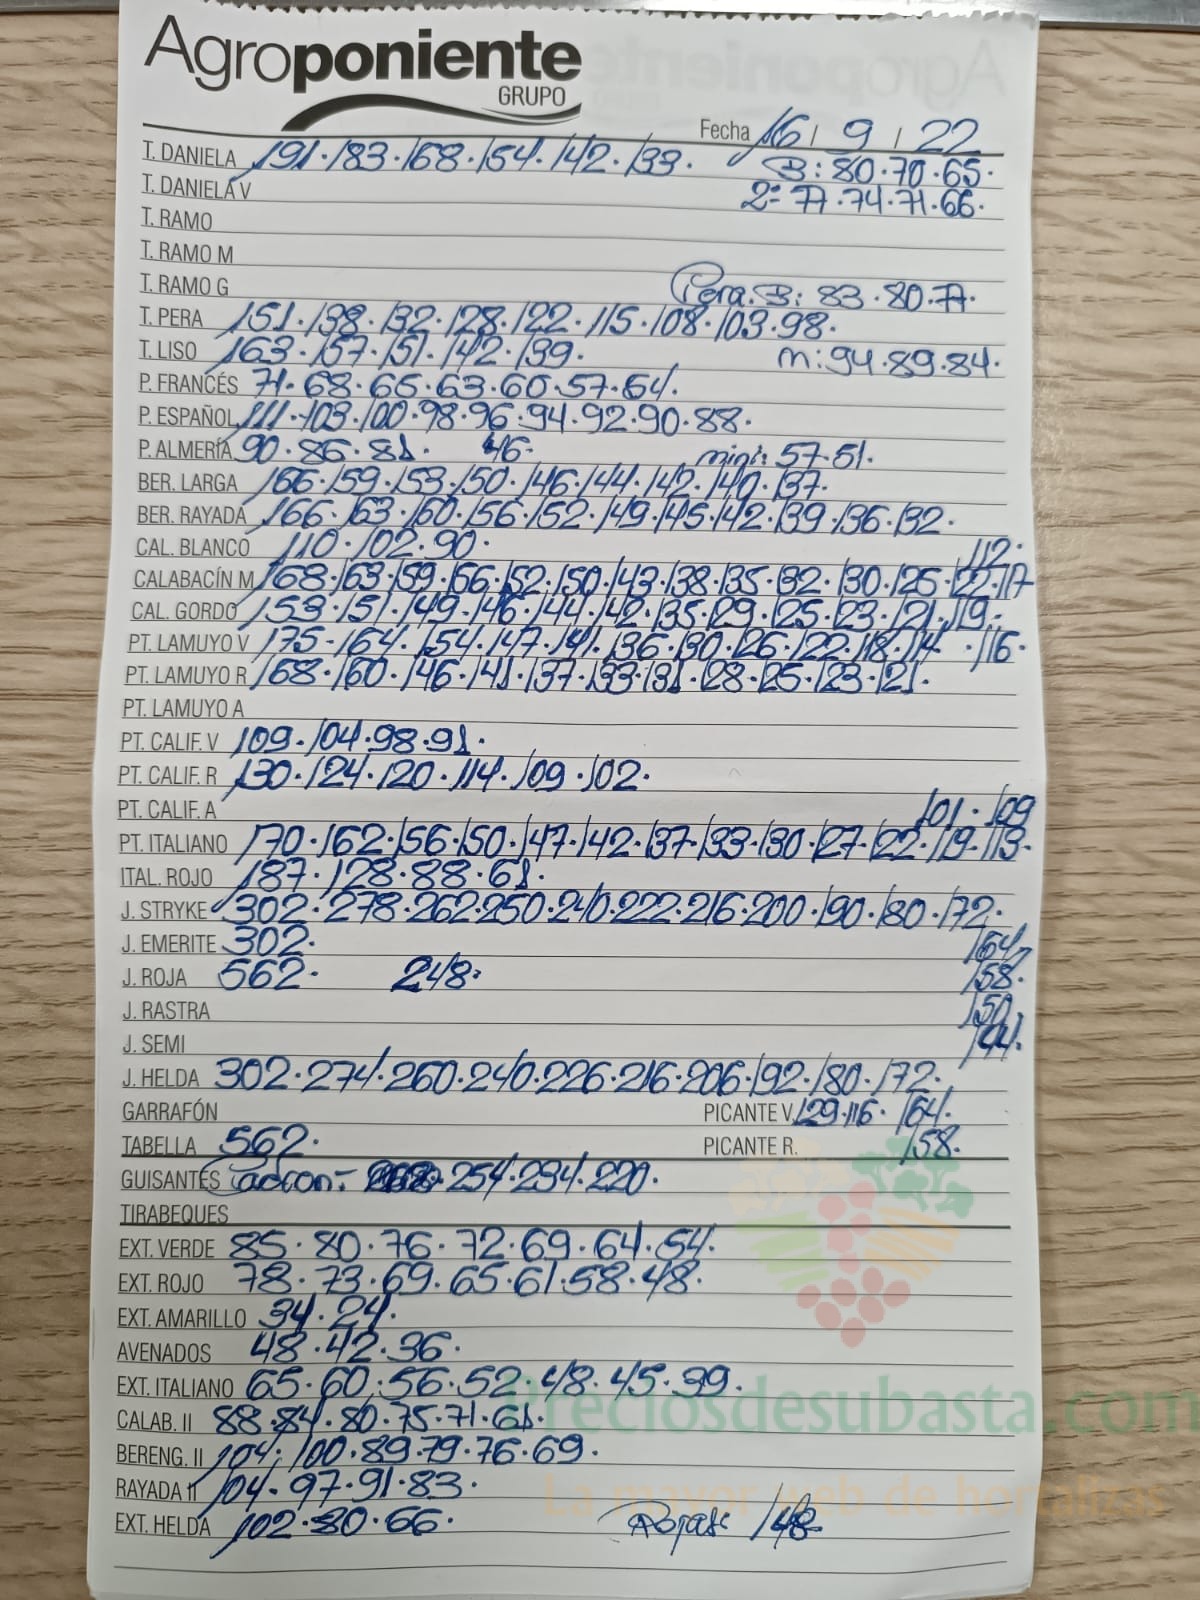 Agroponiente
GRUPO
Fecha 16 / 9 / 22
T. DANIELA 191·183·168·154·142·133· B: 80·70·65·
T. DANIELA V 2ª 77·74·71·66·
T. RAMO
T. RAMO M
T. RAMO G Pera. B: 83·80·77·
T. PERA 151·138·132·128·122·115·108·103·98·
T. LISO 163·157·151·142·139· m: 94·89·84·
P. FRANCÉS 71·68·65·63·60·57·54·
P. ESPAÑOL 111·103·100·98·96·94·92·90·88·
P. ALMERÍA 90·86·81· 46· mini: 57·51·
BER. LARGA 166·159·153·150·146·144·142·140·137·
BER. RAYADA 166·163·160·156·152·149·145·142·139·136·132·
CAL. BLANCO 110·102·90· 112·
CALABACÍN M 168·163·159·156·152·150·143·138·135·132·130·125·122·117
CAL. GORDO 153·151·149·146·144·142·135·129·125·123·121·119·
PT. LAMUYO V 175·164·154·147·141·136·130·126·122·118·114 ·116·
PT. LAMUYO R 168·160·146·141·137·133·131·128·125·123·121·
PT. LAMUYO A
PT. CALIF. V 109·104·98·91·
PT. CALIF. R 130·124·120·114·109·102·
PT. CALIF. A 101·109
PT. ITALIANO 170·162·156·150·147·142·137·133·130·127·122·119·113·
ITAL. ROJO 187·128·88·61·
J. STRYKE 302·278·262·250·240·222·216·200·190·180·172·
J. EMERITE 302· 164
J. ROJA 562· 248· 158·
J. RASTRA 150
J. SEMI 144·
J. HELDA 302·274·260·240·226·216·206·192·180·172·
GARRAFÓN PICANTE V. 129·116· 164·
TABELLA 562· PICANTE R. 158·
GUISANTES 254·234·220·
TIRABEQUES
EXT. VERDE 85·80·76·72·69·64·54·
EXT. ROJO 78·73·69·65·61·58·48·
EXT. AMARILLO 34·24·
AVENADOS 48·42·36·
EXT. ITALIANO 65·60·56·52·48·45·39·
Preciosdesubasta.com
CALAB. II 88·84·80·75·71·61·
BERENG. II 104·100·89·79·76·69·
RAYADA II 104·97·91·83·
La mayor web de hortalizas
EXT. HELDA 102·80·66· Rojas: 148